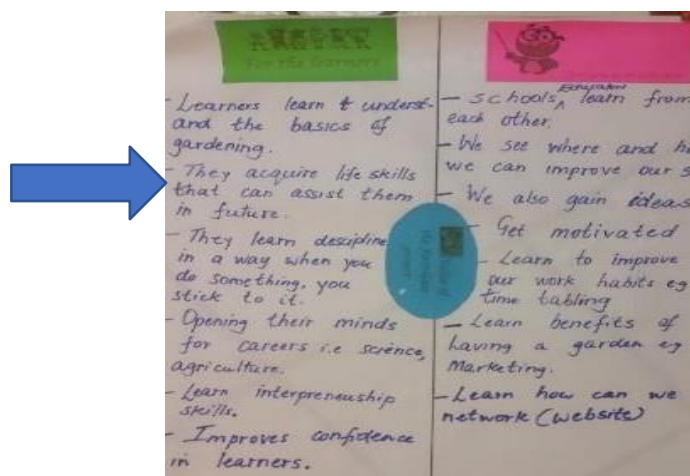 For the learners
- Learners learn & underst-
and the basics of
gardening.
- They acquire life skills
that can assist them
in future.
- They learn descipline
in a way when you
do something, you
stick to it.
- Opening their minds
for careers i.e science,
agriculture.
- Learn interpreneuship
skills.
- Improves confidence
in learners.
- Schools, learn from
each other.
- We see where and
we can improve our
- We also gain ideas
Get motivated
- Learn to improve
our work habits eg
time tabling
- Learn benefits of
having a garden eg
Marketing.
- Learn how can we
network (website)